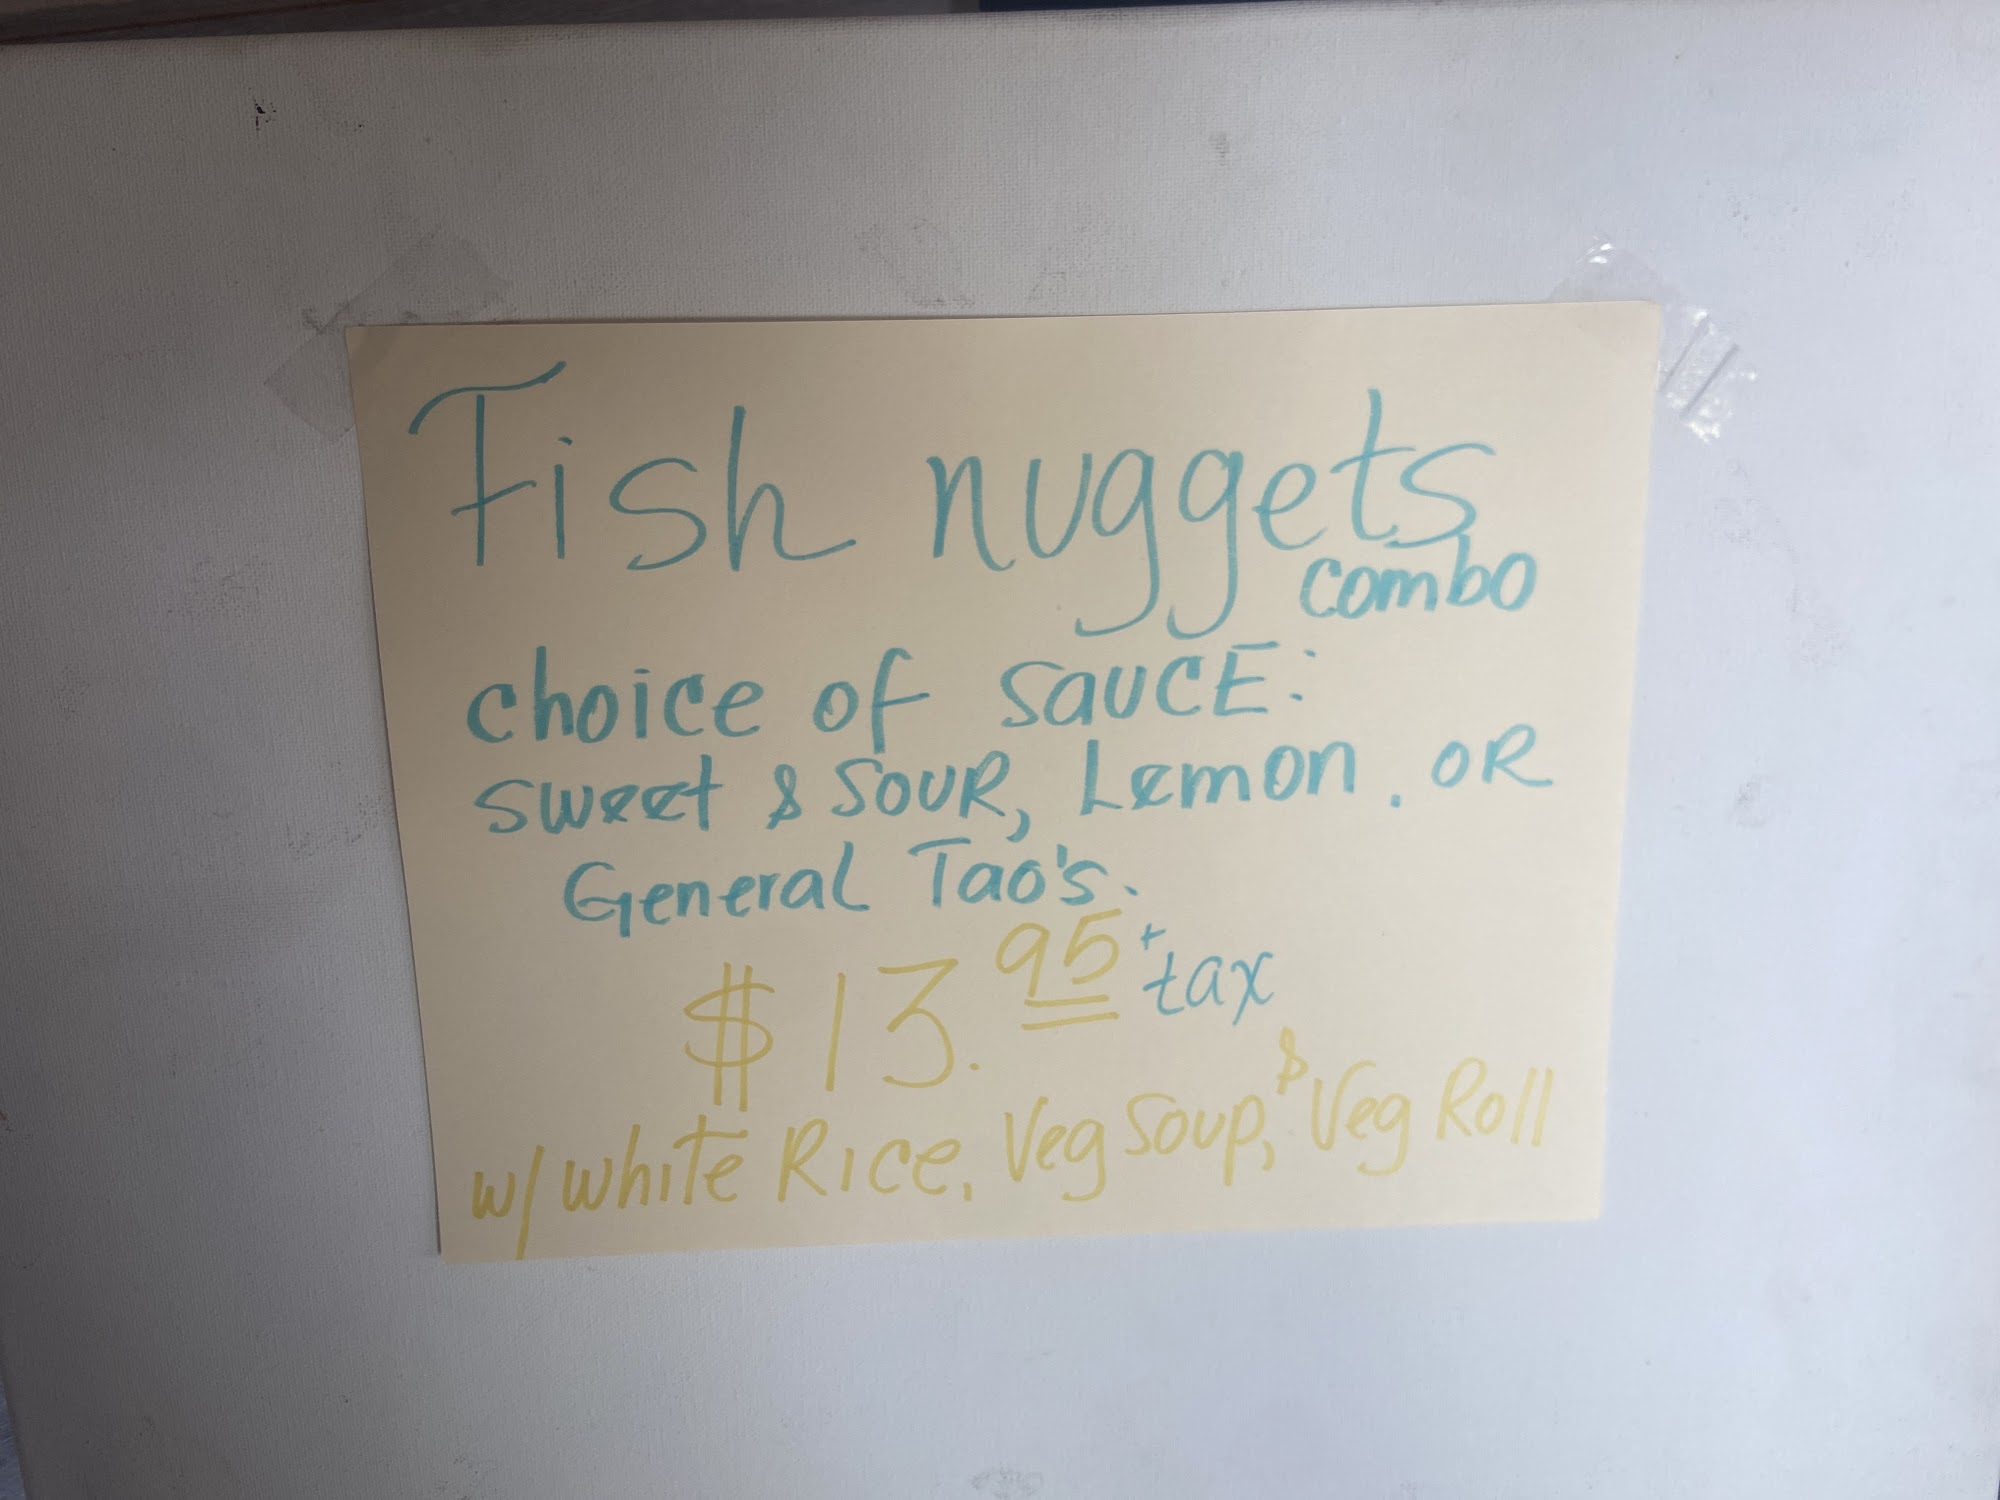 Fish nuggets
combo
choice of sauce:
sweet & sour, Lemon. OR
General Tao's.
$13.95 + tax
w/ white Rice, Veg Soup, & Veg Roll